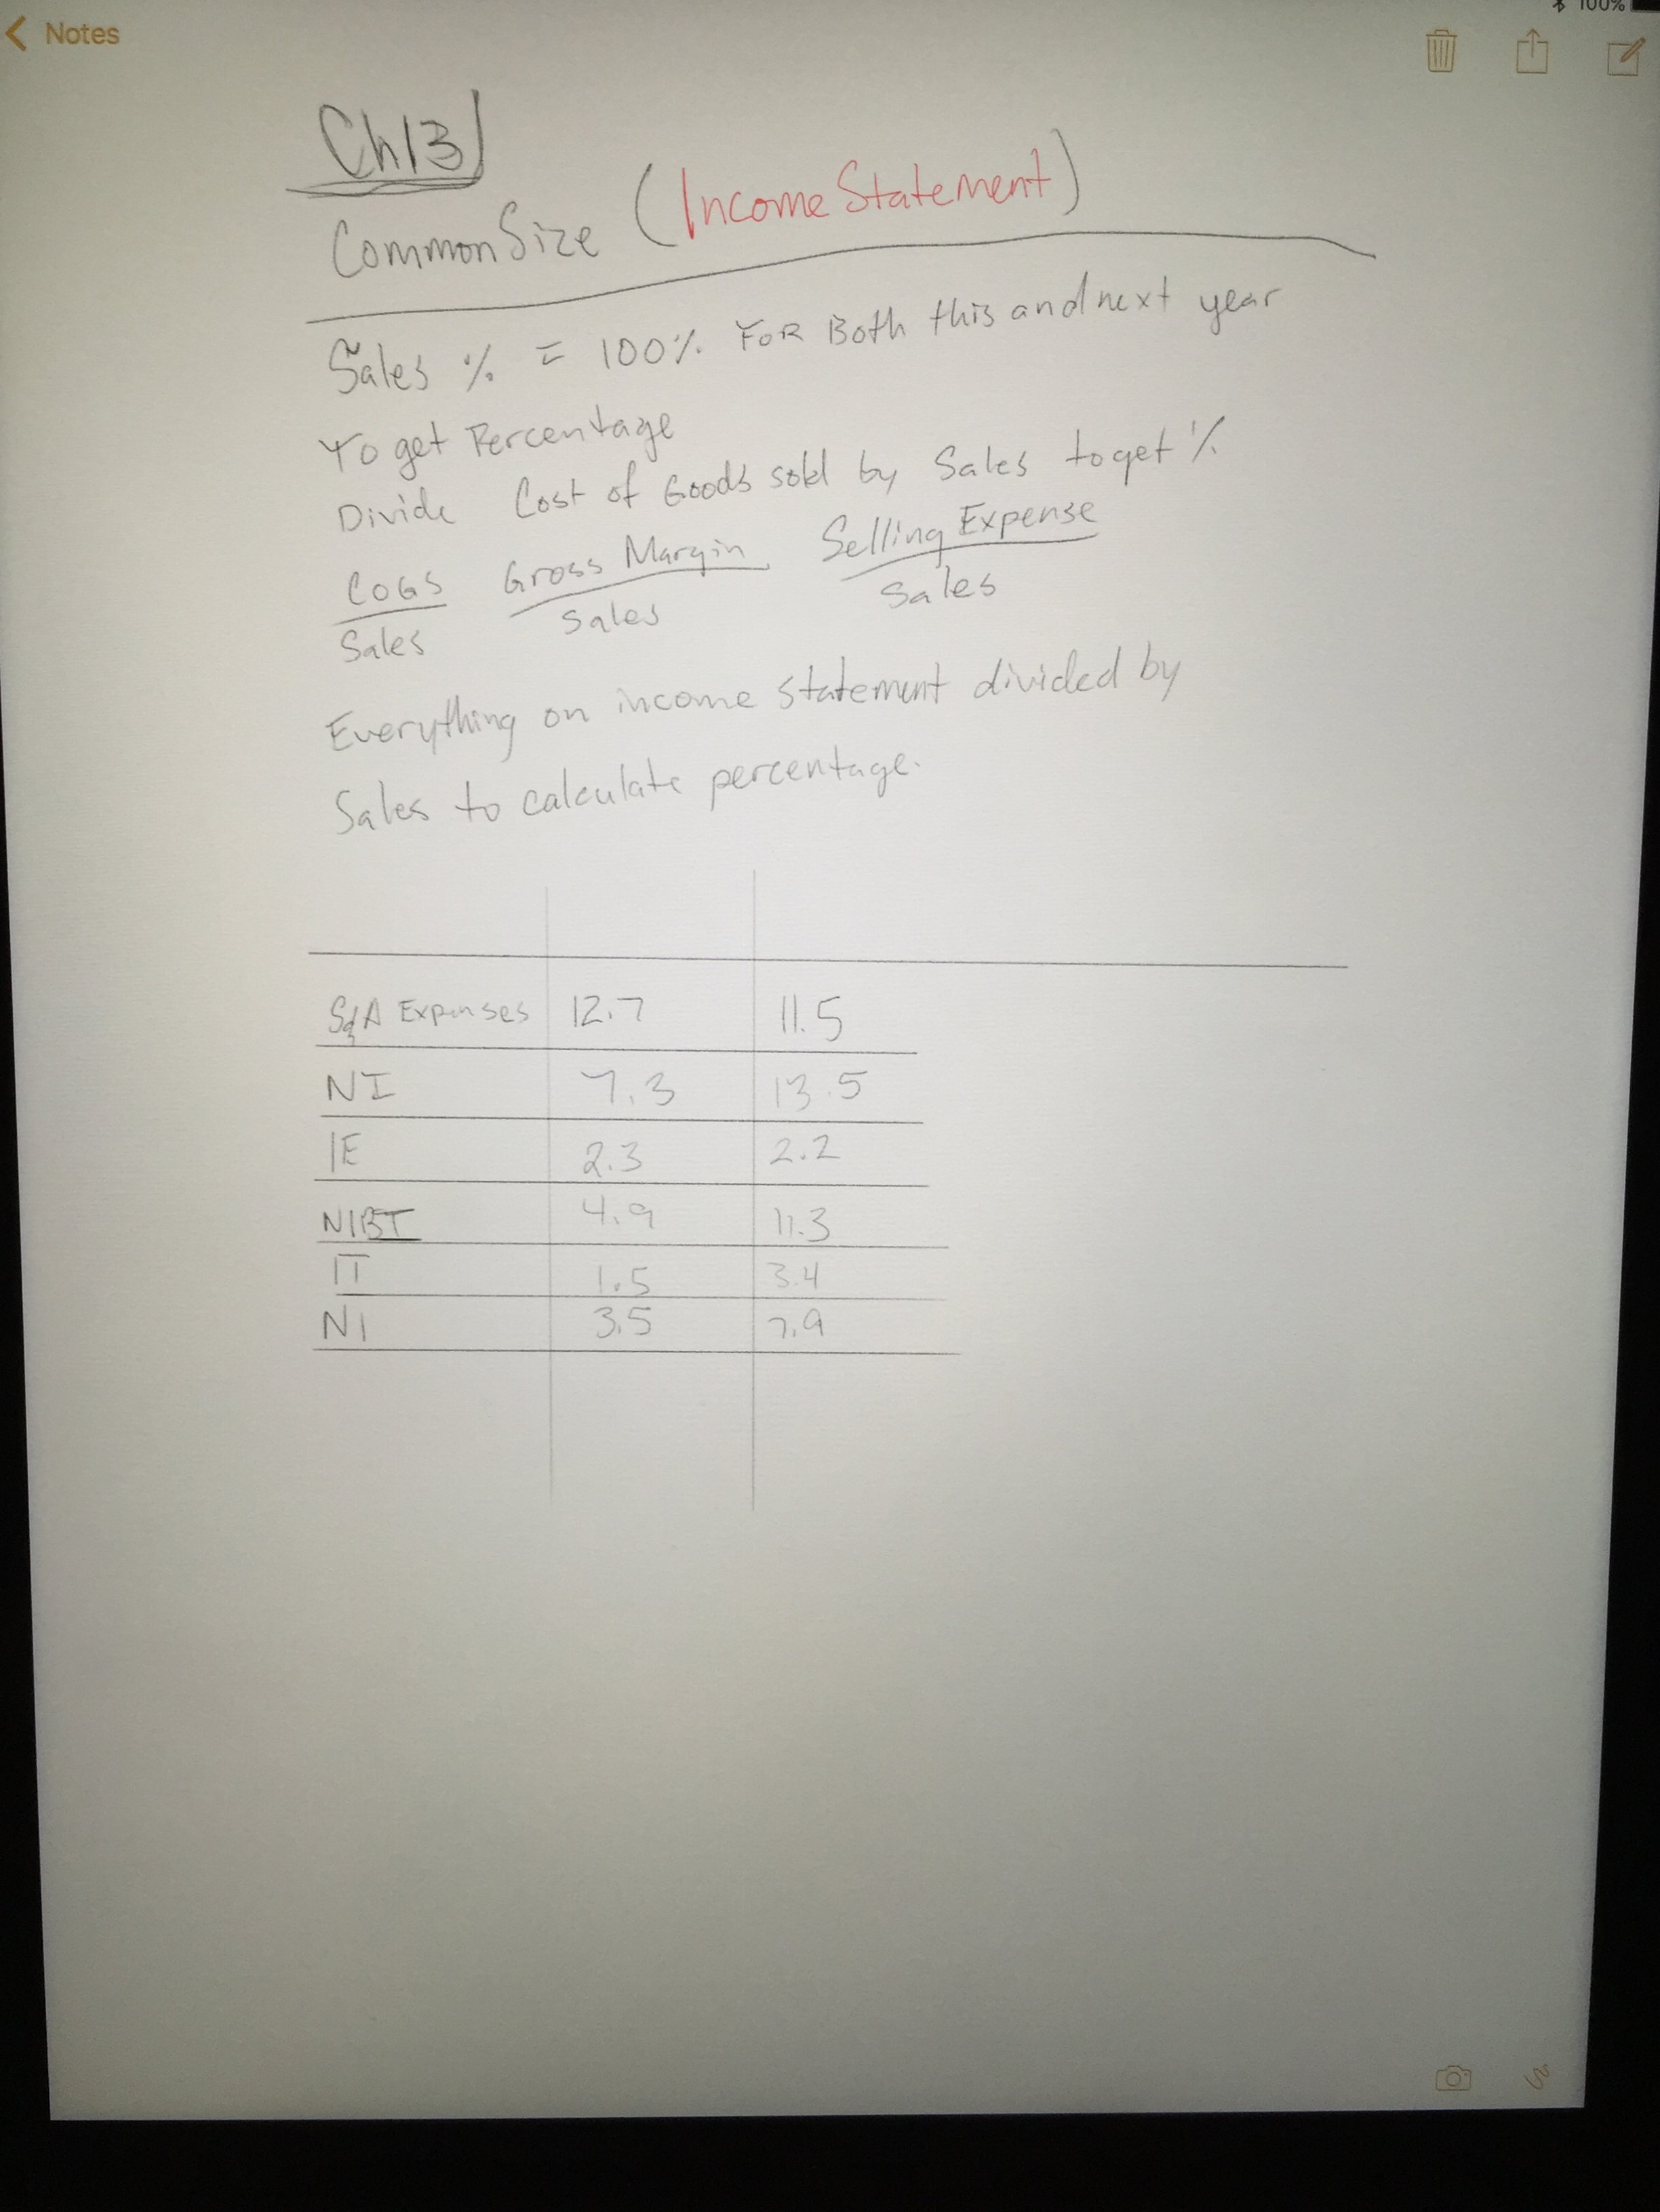 100%
Notes
Ch13
Common Size (Income Statement)
Sales % = 100% FOR Both this and next year
To get Percentage
Divide Cost of Goods sold by Sales to get %
COGS Gross Margin Selling Expense
Sales Sales Sales
Everything on income statement divided by
Sales to calculate percentage.
S&A Expenses 12.7 11.5
NI 7.3 13.5
IE 2.3 2.2
NIBT 4.9 11.3
IT 1.5 3.4
NI 3.5 7.9